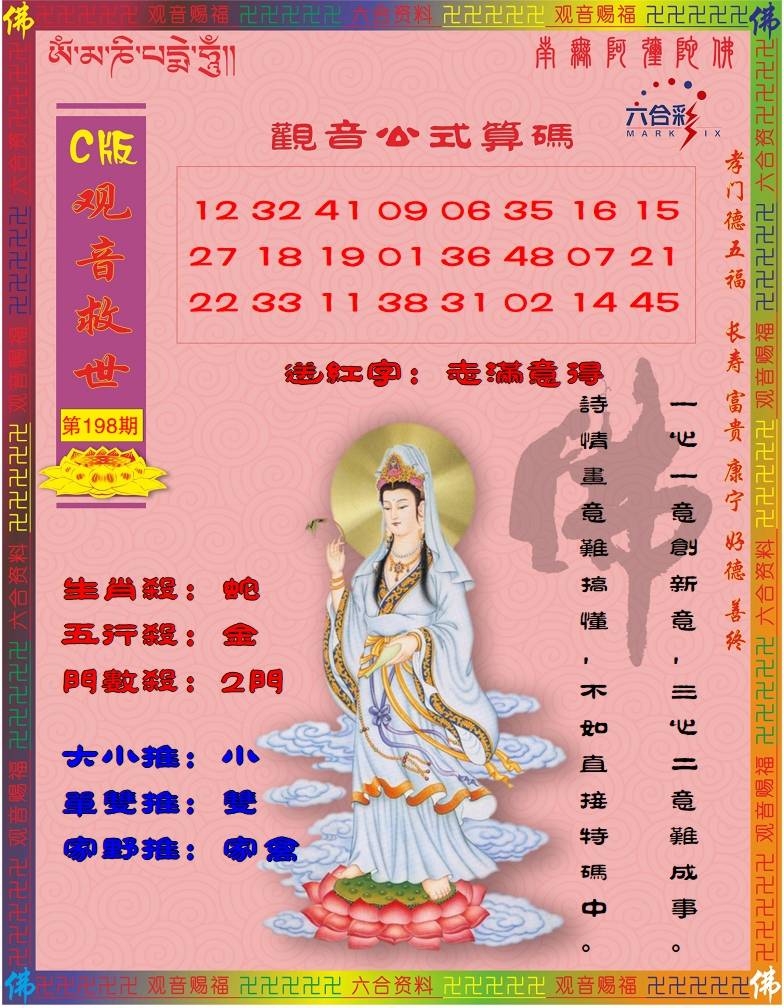 佛 卍卍卍卍卍 观音赐福 卍卍卍卍卍 六合资料 卍卍卍卍卍 观音赐福 卍卍卍卍卍 佛
南無阿彌陀佛
六合彩
MARK SIX
C版
观音救世
第198期
觀音公式算碼
12 32 41 09 06 35 16 15
27 18 19 01 36 48 07 21
22 33 11 38 31 02 14 45
送紅字：志滿意得
孝门德五福 长寿 富贵 康宁 好德 善终
一心一意創新意，三心二意難成事。
詩情畫意難搞懂，不如直接特碼中。
佛
生肖殺：蛇
五行殺：金
門數殺：2門
大小推：小
單雙推：雙
家野推：家禽
佛 观音赐福 卍卍卍卍卍 六合资料 卍卍卍卍卍 观音赐福 卍卍卍卍卍 佛